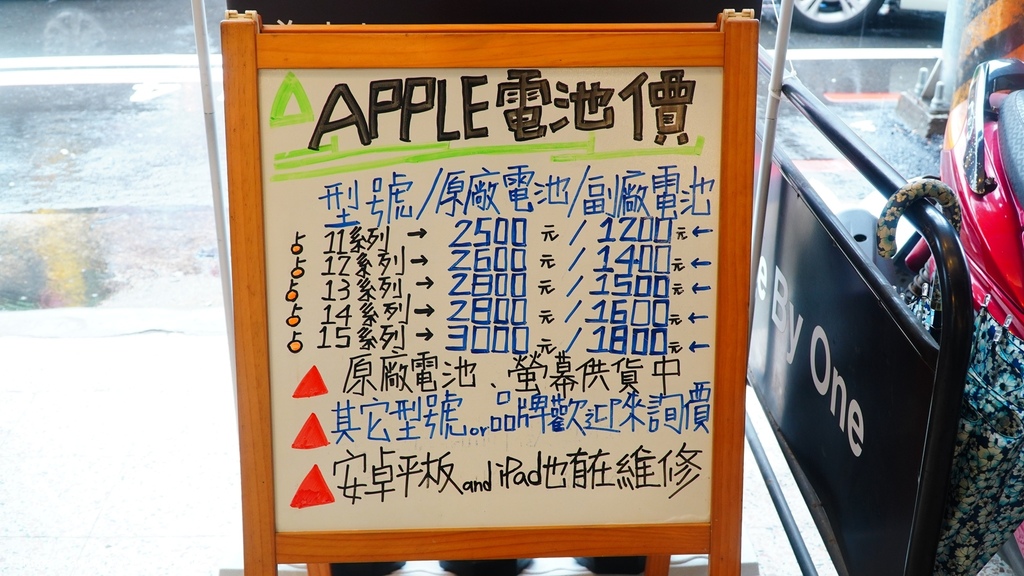 APPLE電池價
型號/原廠電池/副廠電池
11系列→ 2500元/1200元←
12系列→ 2600元/1400元←
13系列→ 2800元/1500元←
14系列→ 2800元/1600元←
15系列→ 3000元/1800元←
原廠電池、螢幕供貨中
其它型號or品牌歡迎來詢價
安卓平板and iPad也有在維修
e By One